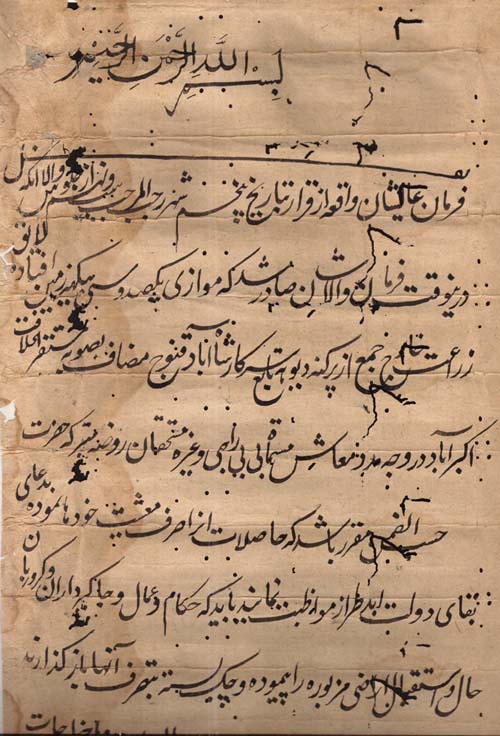 بسم الله الرحمن الرحیم
نقل
فرمان عالیشان واقعه از قرار بتاریخ پنجم شهر رجب المرجب سنه جلوس والا آنکه
درینوقت فرمان والاشان صادر شد که موازی یکصد و سی بیگهه زمین افتاده لایق
زراعت خارج جمع از پرگنه تابع سرکار شاه آباد قنوج مضاف بصوبه مستقر الخلافت
اکبرآباد در وجه مدد معاش مسماة بی بی راجی و غیره مستحقان روضه متبرکه حضرت
حسب الضمن مقرر باشد که حاصلات آنرا صرف معیشت خود ها نموده بدعای
بقای دولت ابد طراز مواظبت نمایند باید که حکام و عمال و جاگیرداران و کروریان
حال و استقبال اراضی مزبوره را پیموده و چک بسته بتصرف آنها باز گذارند